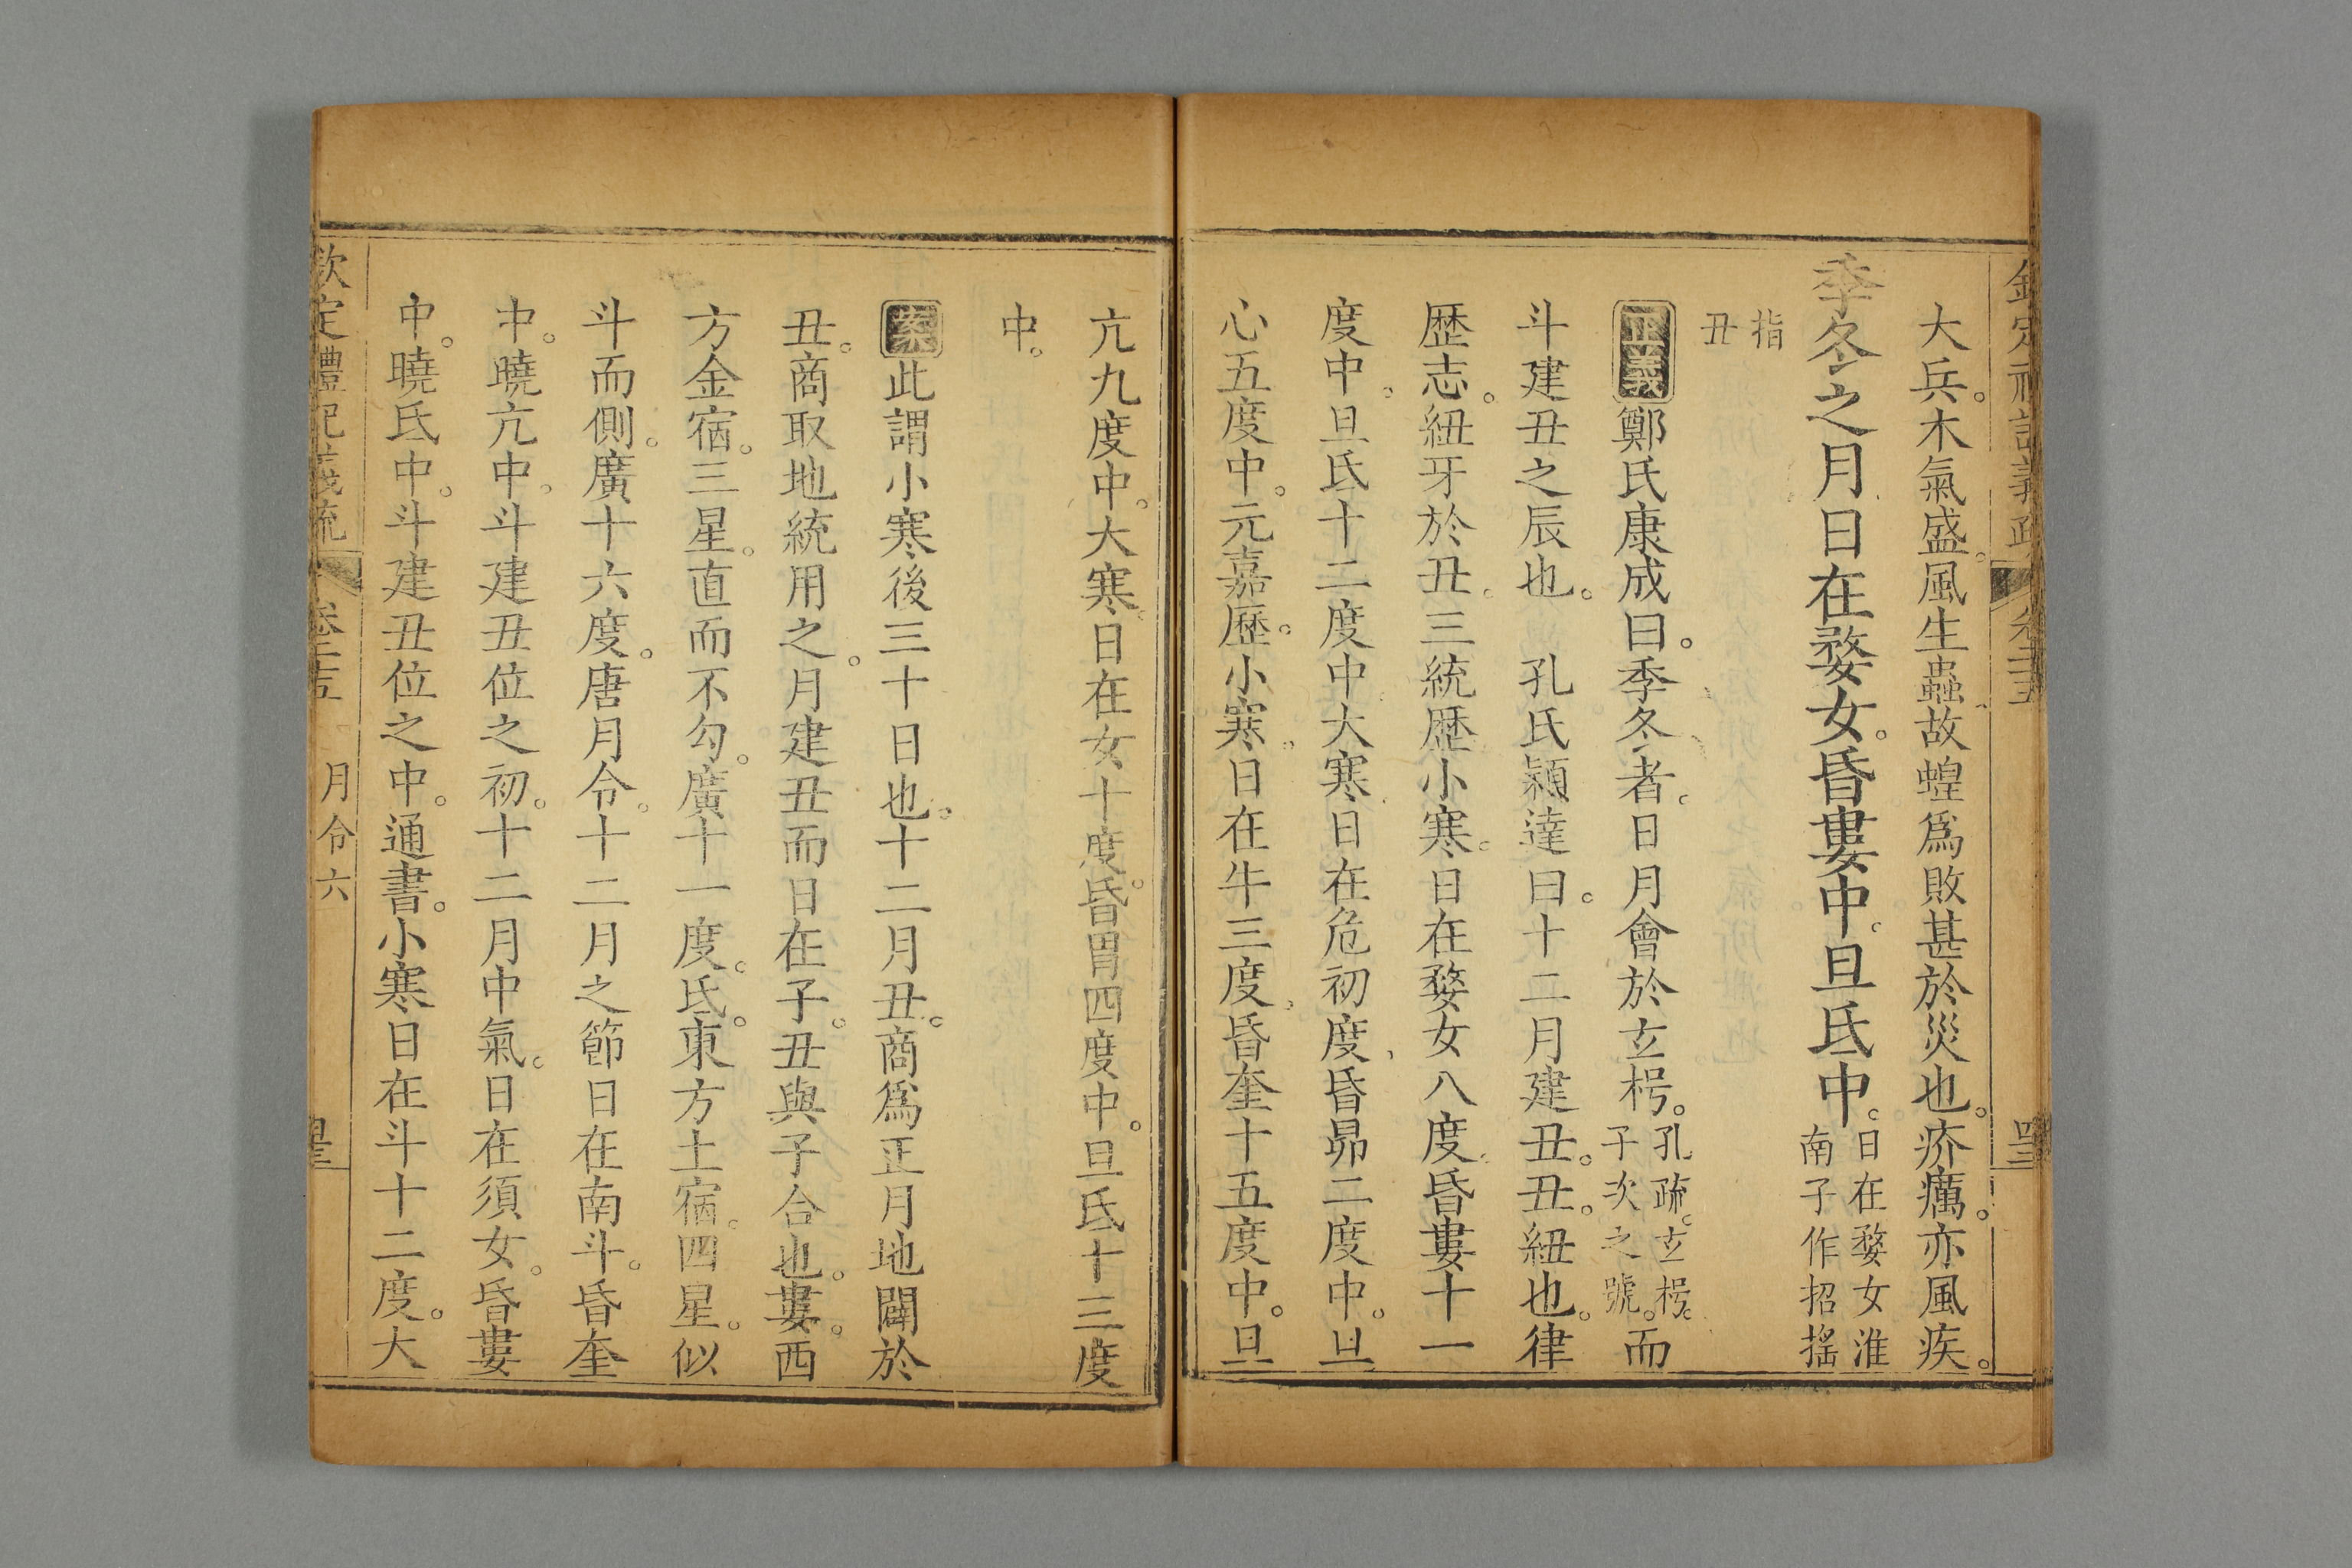 欽定禮記義疏 卷二十五 四三
大兵。木氣盛。風生蟲故蝗爲敗甚於災也。疥癘。亦風疾。
季冬之月日在婺女。昏婁中。旦氐中。日在婺女淮
南子作招搖
指
丑
正義鄭氏康成曰。季冬者。日月會於玄枵。孔疏。玄枵。
子次之號。而
斗建丑之辰也。 孔氏穎達曰。十二月建丑。丑。紐也。律
歴志。紐牙於丑。三統歴小寒。日在婺女八度。昏婁十一
度中。旦氐十二度中大寒日在危初度。昏昴二度中。旦
心五度中。元嘉歷。小寒。日在牛三度。昏奎十五度中。旦
亢九度中。大寒。日在女十度。昏胃四度中。旦氐十三度
中。
案此謂小寒後三十日也。十二月丑。商爲正月地闢於
丑。商取地統用之。月建丑而日在子。丑與子合也。婁。西
方金宿。三星。直而不勾。廣十一度。氐。東方土宿。四星。似
斗而側。廣十六度。唐月令。十二月之節日在南斗。昏奎
中。曉亢中。斗建丑位之初。十二月中氣。日在須女。昏婁
中。曉氐中。斗建丑位之中。通書。小寒日在斗十二度。大
欽定禮記義疏 卷二十五 月令六